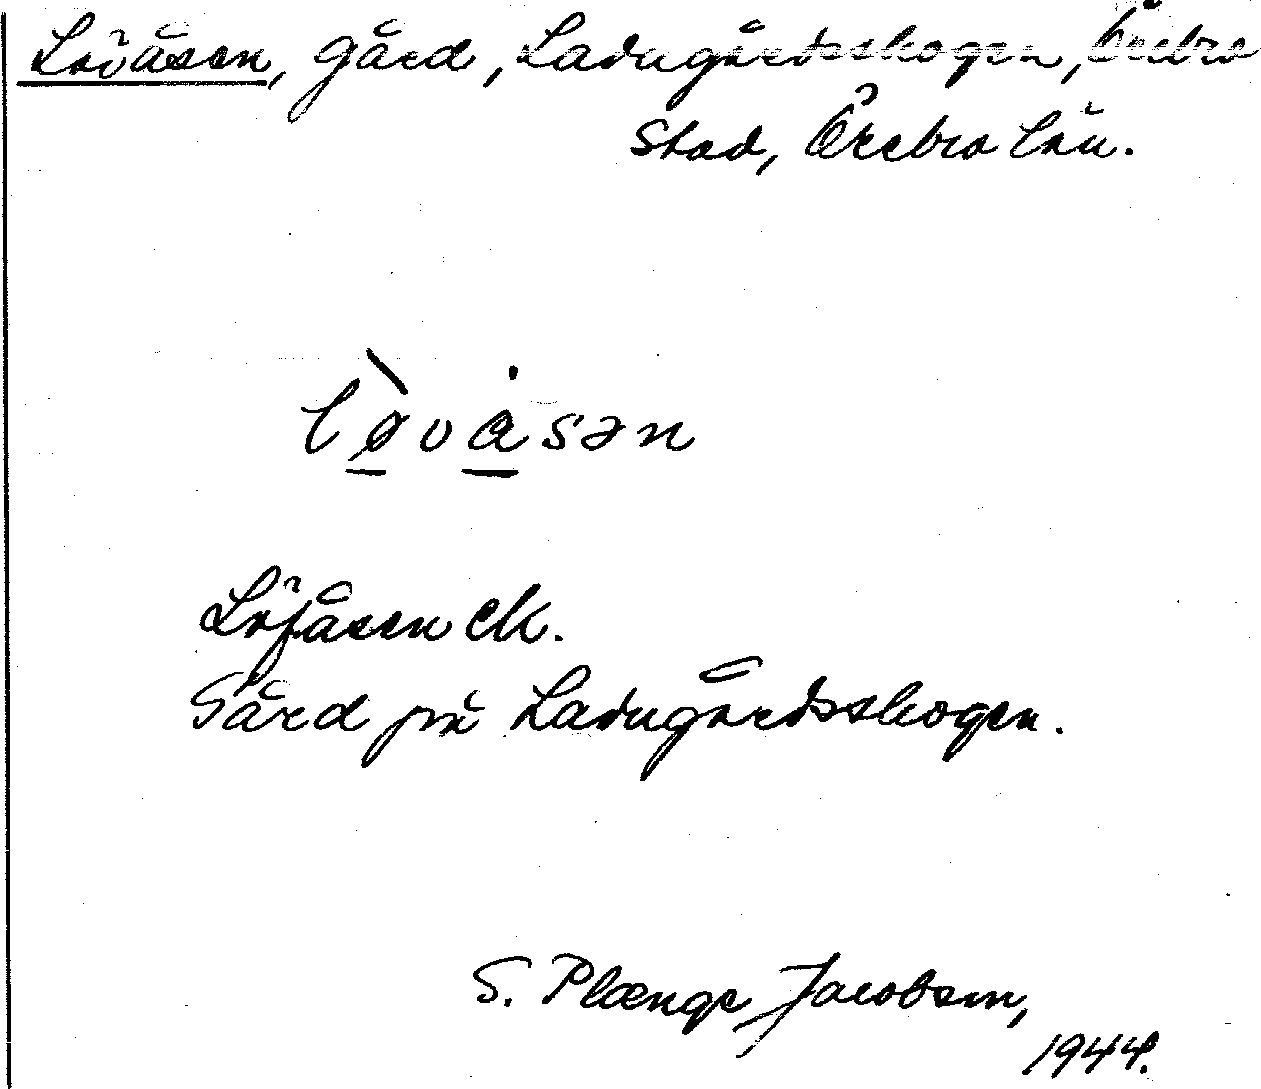 Lövåsen, Gård, Ladugårdsskogen, Örebro
Stad, Örebro län.
lø̀våsən
Löfåsen EK.
Gård på Ladugårdsskogen.
S. Plænge Jacobson,
1944.